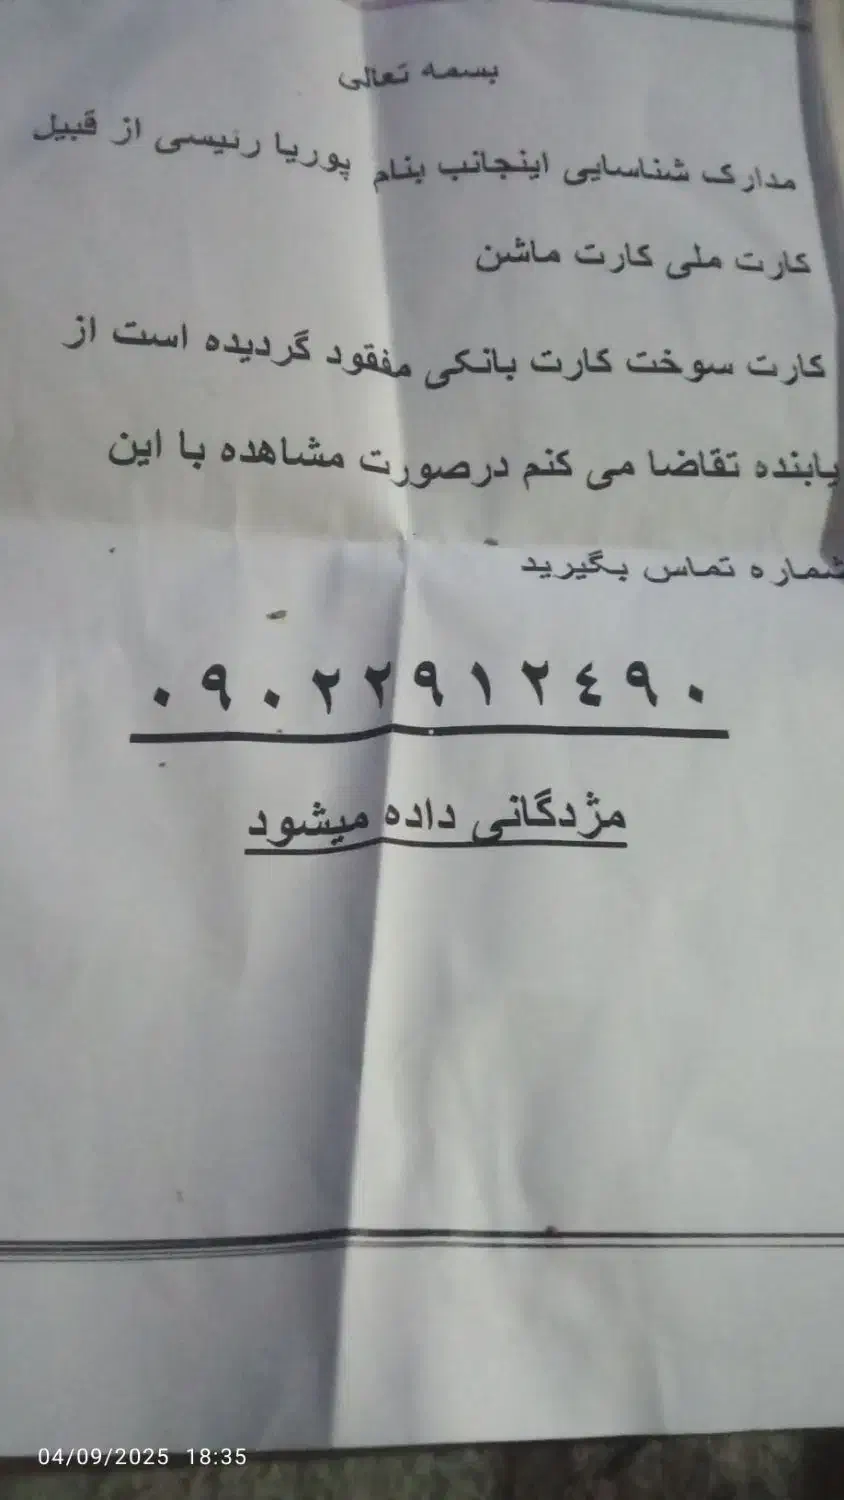 بسمه تعالی
مدارک شناسایی اینجانب بنام پوریا رئیسی از قبیل
کارت ملی کارت ماشن
کارت سوخت کارت بانکی مفقود گردیده است از
یابنده تقاضا می کنم درصورت مشاهده با این
شماره تماس بگیرید
٠٩٠٢٢٩١٢٤٩٠
مژدگانی داده میشود
04/09/2025 18:35